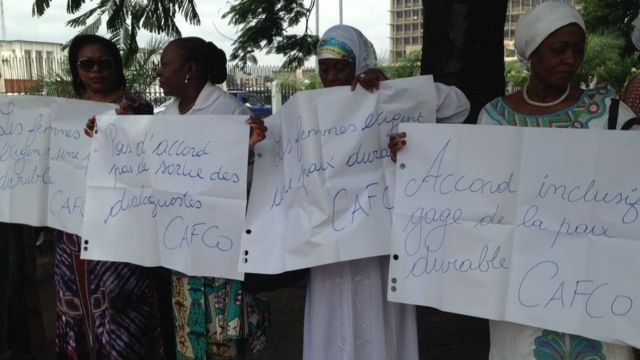 Les femmes
exigent une p
durable
CAFCo
Pas d'accord
pas de sortie des
dialoguistes
CAFCo
Les femmes exigent
une paix durable
CAFCo
Accord inclusif
gage de la paix
durable
CAFCo